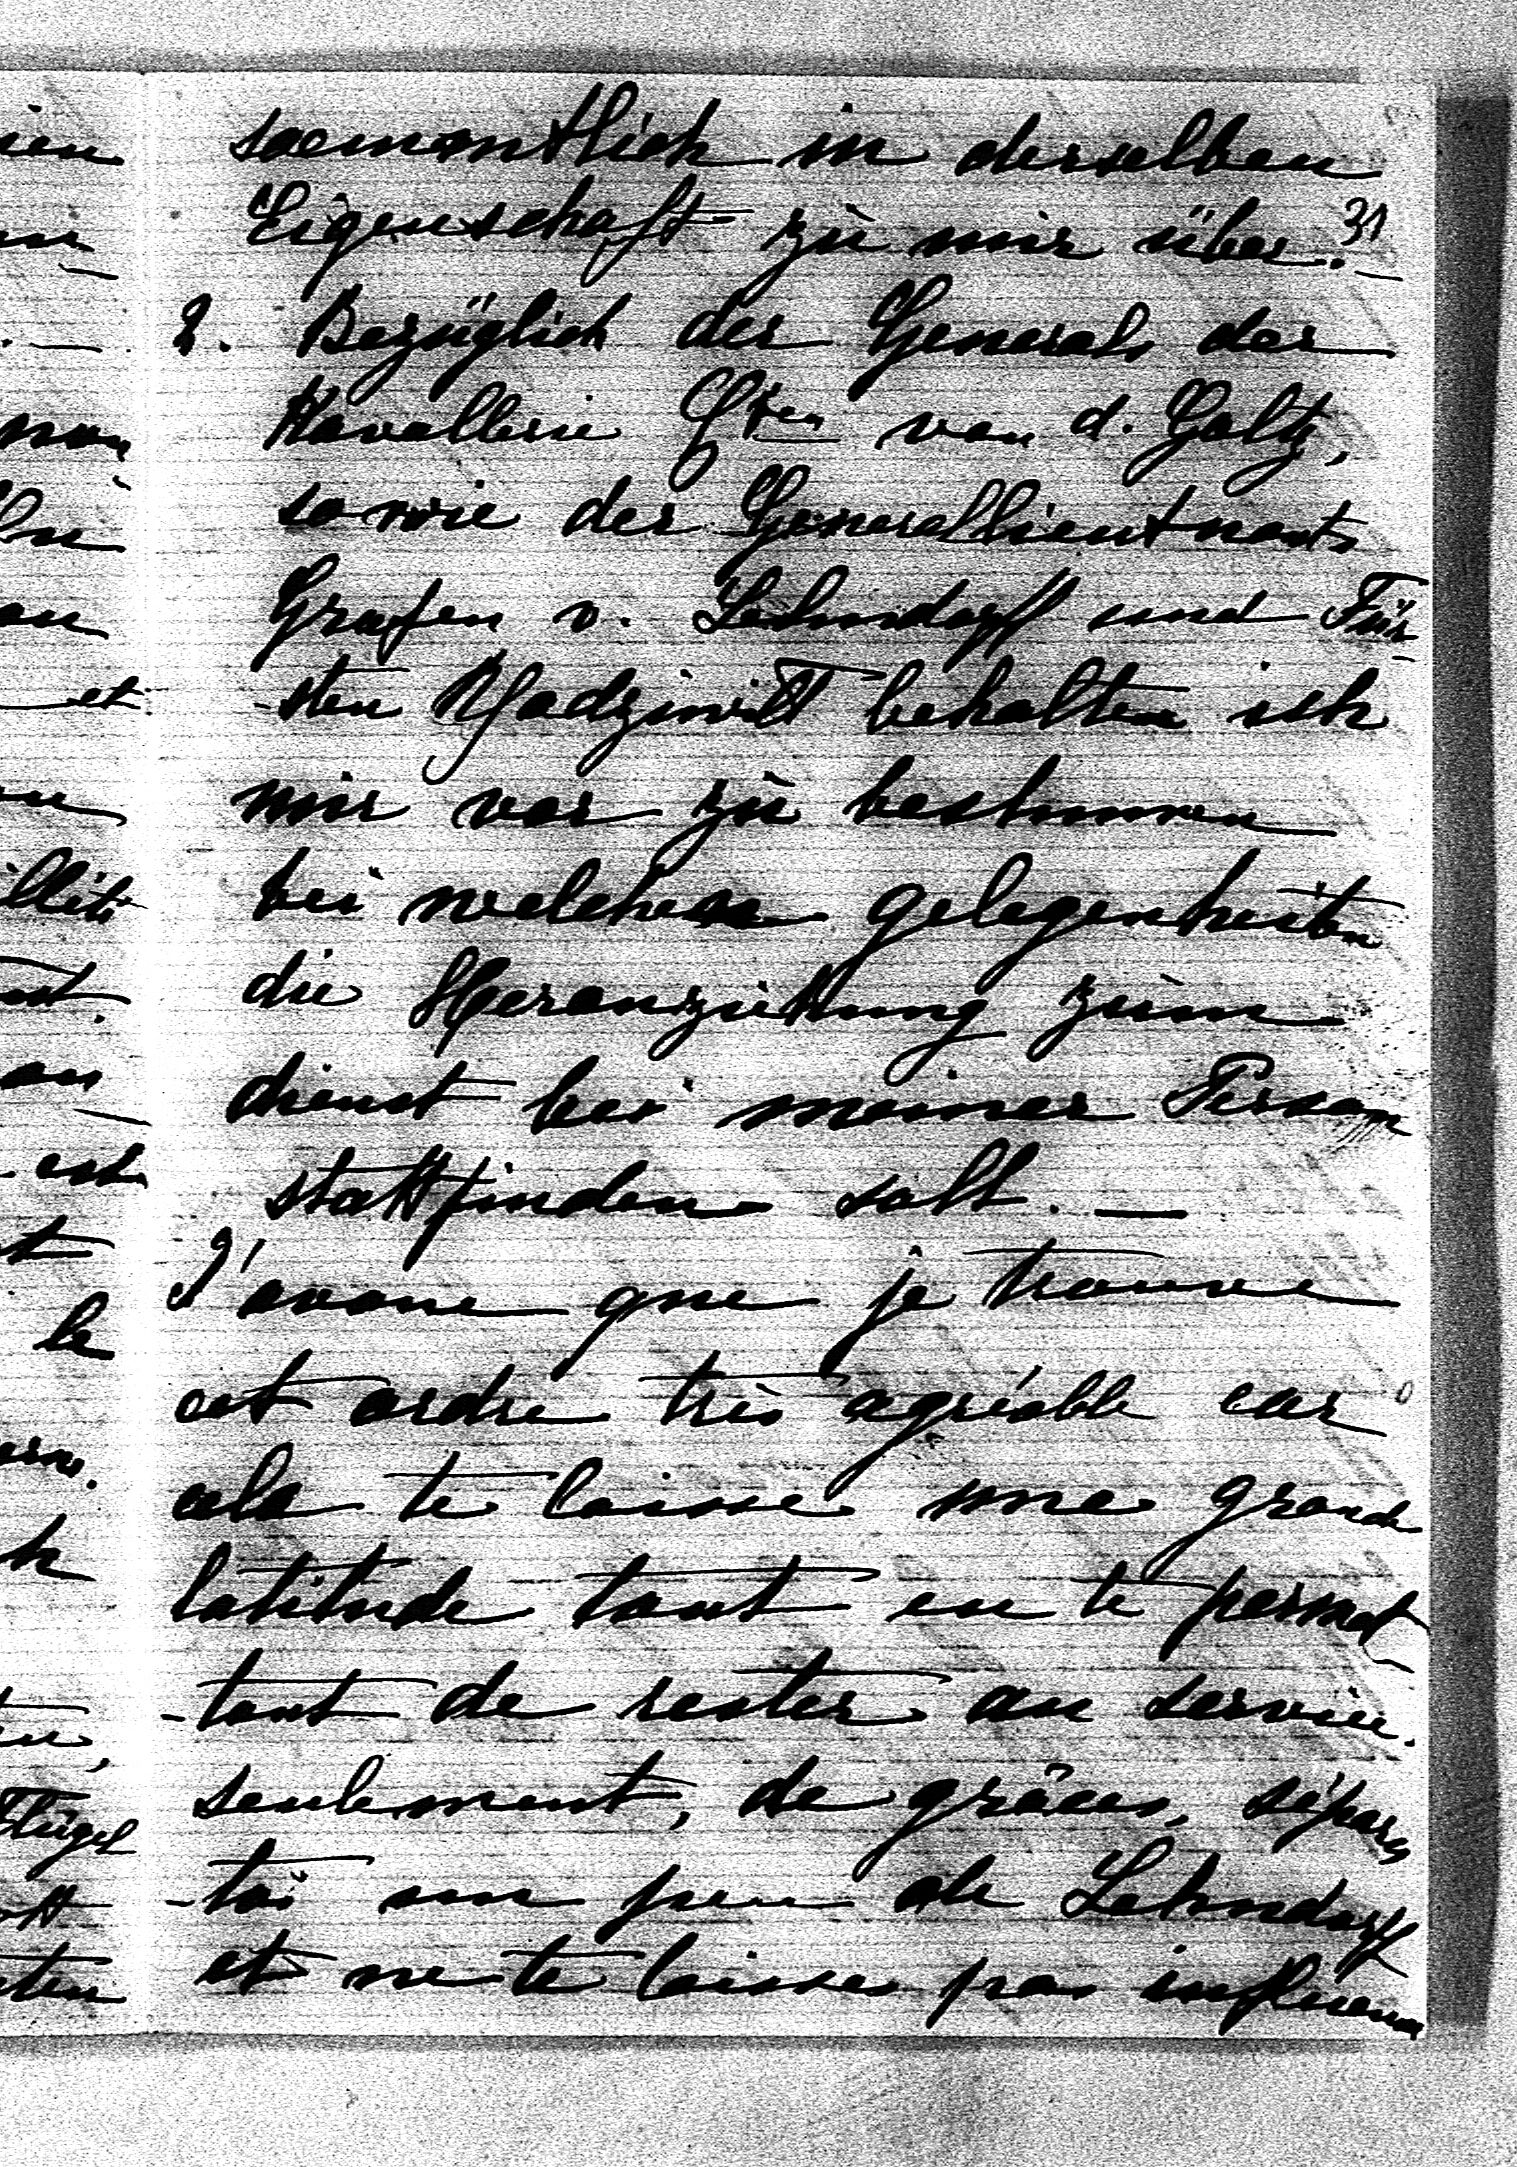 saemmtlich in derselben
Eigenschaft zu mir über.
31
2. Bezüglich des Generals der
Kavallerie Gfen von d. Goltz,
sowie der Generallieutnants
Grafen v. Lehndorff und Für
-sten Radziwill behalten ich
mir vor zu bestimmen
bei welchen gelegenheiten
die Heranziehung zum
dienst bei meiner Person
stattfinden soll. —
J'avoue que je trouve
cet ordre très agréable car
cela te laisse une grande
latitude tout en te permet
-tant de rester au service.
seulement, de grâces, sépares
-toi un peu de Lehndorff
et ne te laisses pas influencer